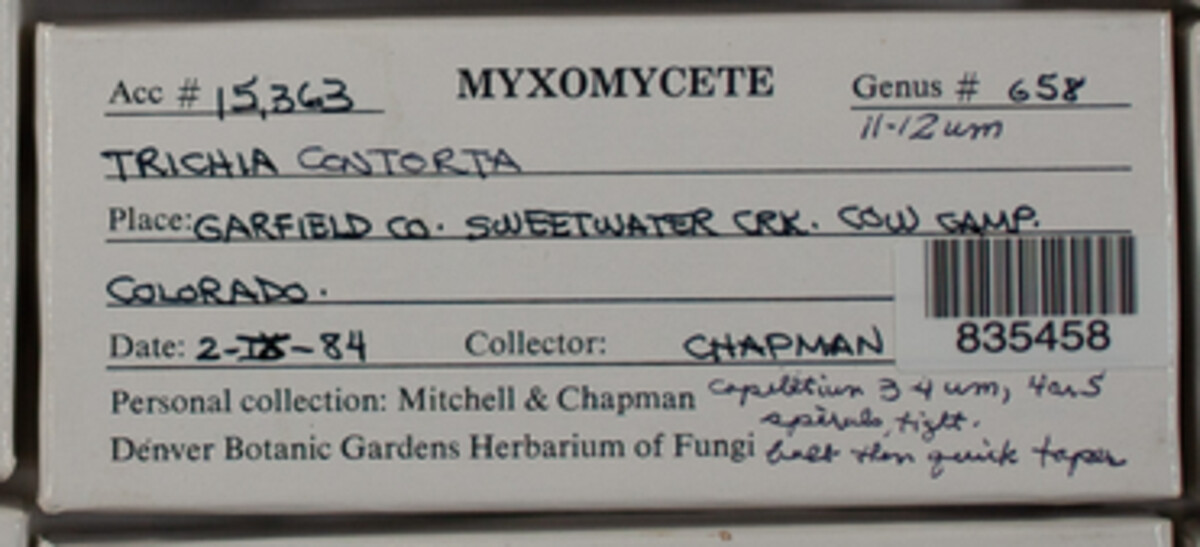 Acc # 15,363 MYXOMYCETE Genus # 658
11-12 um
TRICHIA CONTORTA
Place: GARFIELD CO. SWEETWATER CRK. COW CAMP.
COLORADO.
835458
Date: 2-IX-84 Collector: CHAPMAN
Personal collection: Mitchell & Chapman capillitium 3-4 um, 4 or 5
spirals, tight.
Denver Botanic Gardens Herbarium of Fungi then quick taper